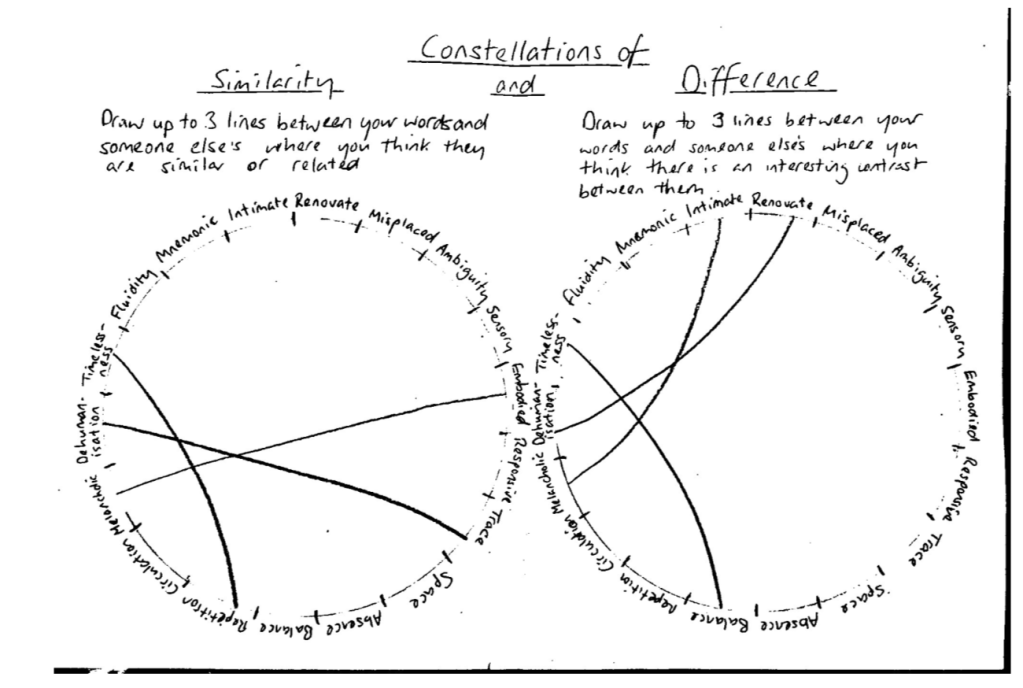 Constellations of
Similarity and Difference
Draw up to 3 lines between your words and
someone else's where you think they
are similar or related
Draw up to 3 lines between your
words and someone else's where you
think there is an interesting contrast
between them.
Renovate
Misplaced
Ambiguity
Sensory
Embodied
Responsive
Trace
Space
Absence
Balance
Repetition
Circulation
Melancholic
Dehuman-
isation
Timeless-
ness
Fluidity
Mnemonic
Intimate
Renovate
Misplaced
Ambiguity
Sensory
Embodied
Responsive
Trace
Space
Absence
Balance
Repetition
Circulation
Melancholic
Dehuman-
isation
Timeless-
ness
Fluidity
Mnemonic
Intimate